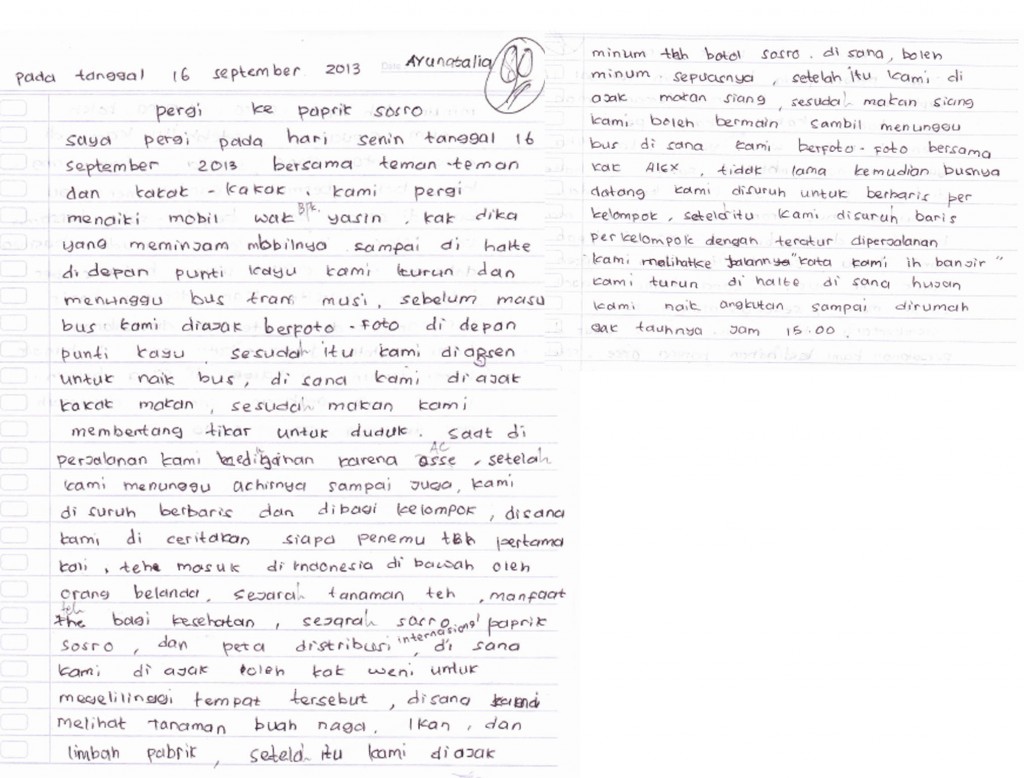 Ayunatalia
80
pada tanggal 16 september 2013
pergi ke paprik sosro
saya pergi pada hari senin tanggal 16
september 2013 bersama teman-teman
dan kakak-kakak. kami pergi
menaiki mobil wak Bpk. yasin, kak dika
yang meminjam mobilnya sampai di halte
di depan punti kayu kami turun dan
menunggu bus trans musi, sebelum masu
bus kami diajak berfoto-foto di depan
punti kayu, sesudah itu kami diabsen
untuk naik bus, di sana kami di ajak
kakak makan, sesudah makan kami
membentang tikar untuk duduk. saat di
perjalanan kami kedinginan karena asse AC, setelah
kami menunggu achirnya sampai juga, kami
di suruh berbaris dan dibagi kelompok, disana
kami di ceritakan siapa penemu teh pertama
kali, tehe masuk di indonesia di bawah oleh
orang belanda, sejarah tanaman teh, manfaat
the teh bagi kesehatan, sejarah sosro paprik
sosro, dan peta distribusi internasional, di sana
kami di ajak oleh kak weni untuk
megelilinggi tempat tersebut, disana kami
melihat tanaman buah naga, ikan, dan
limbah pabrik, setela itu kami di ajak
minum teh botol sosro. di sana, boleh
minum sepuasnya, setelah itu kami di
ajak makan siang, sesudah makan siang
kami boleh bermain sambil menunggu
bus di sana kami berfoto-foto bersama
kak Alex, tidak lama kemudian busnya
datang kami disuruh untuk berbaris per
kelompok, setela itu kami disuruh baris
perkelompok dengan teratur diperjalanan
kami melihatke jalannya "kata kami ih banjir"
kami turun di halte di sana hujan
kami naik angkutan sampai dirumah
gak tauhnya jam 15.00.